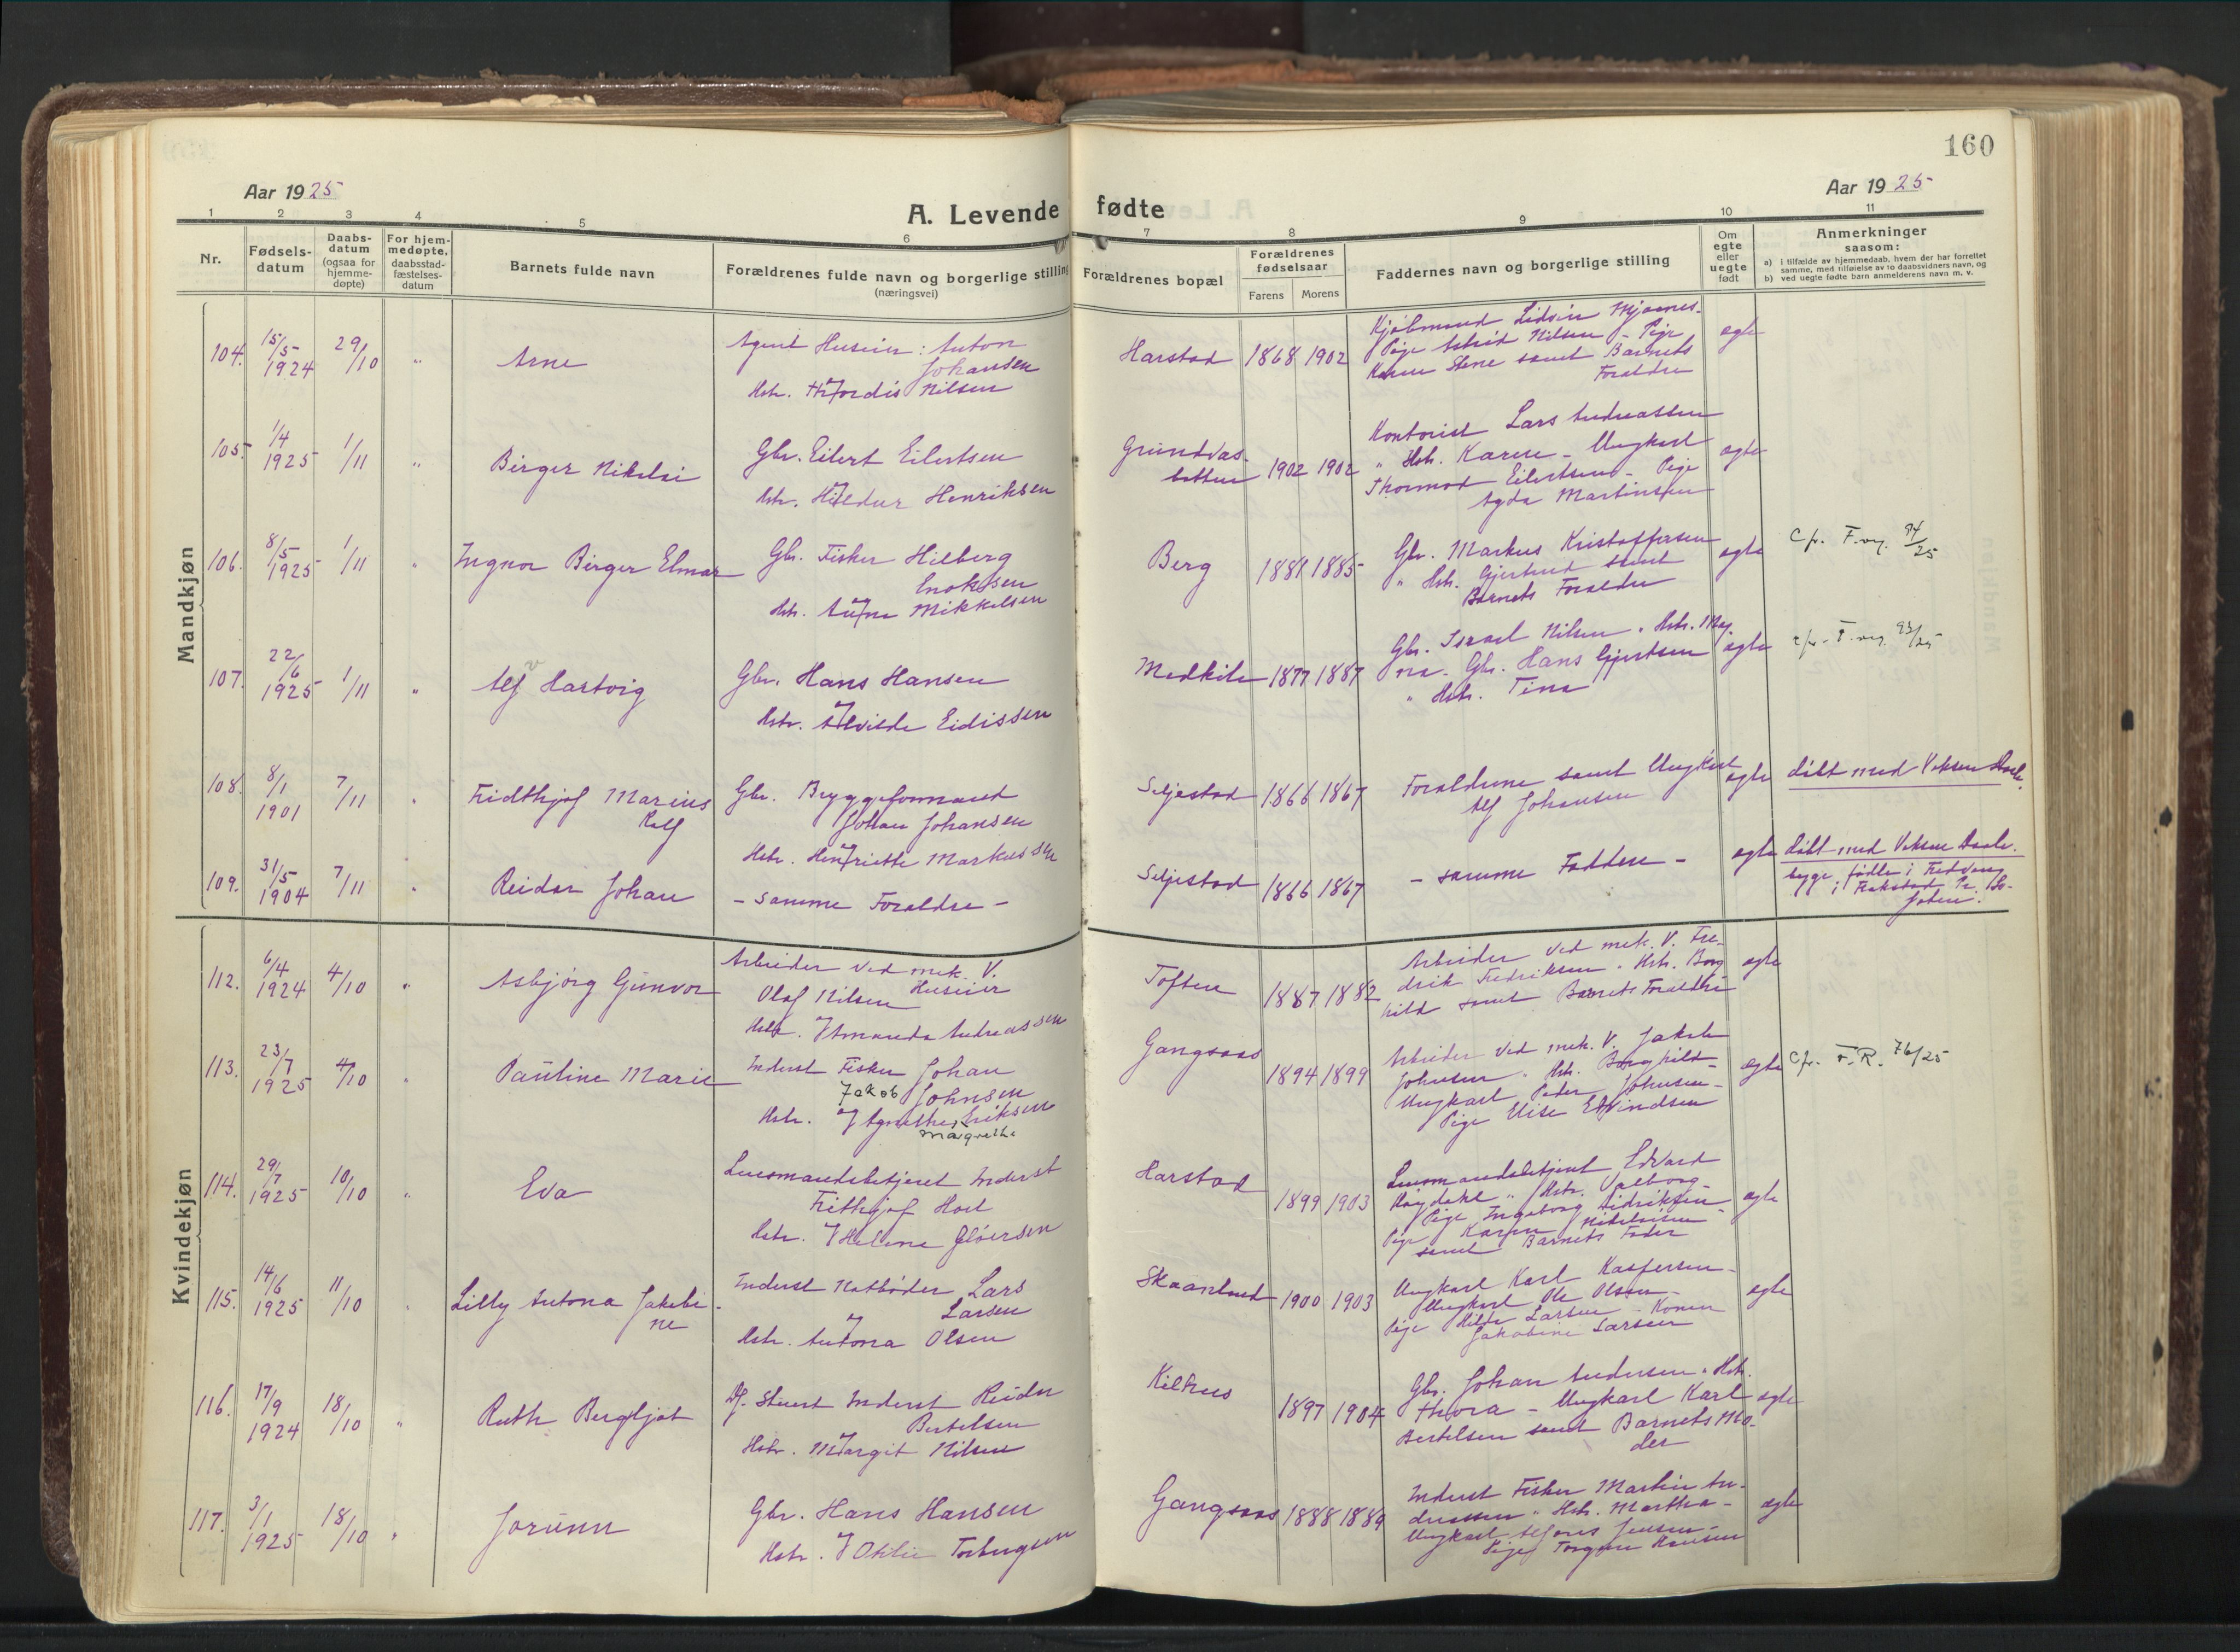 160
Aar 1925
Aar 1925
A. Levende fødte
1 2 3 4 5 6 7 8 9 10 11
Nr.
Fødsels-
datum
Daabs-
datum
(ogsaa for
hjemme-
døpte)
For hjem-
medøpte,
daabsstad-
fæstelses-
datum
Barnets fulde navn
Forældrenes fulde navn og borgerlige stilling
(næringsvei)
Forældrenes bopæl
Forældrenes
fødselsaar
Farens Morens
Faddernes navn og borgerlige stilling
Om
egte
eller
uegte
født
Anmerkninger
saasom:
a) i tilfælde av hjemmedaab, hvem der har forrettet
samme, med tilføielse av to daabsvidners navn, og
b) ved uegte fødte barn anmelderens navn m. v.
Mandkjøn
104. 15/5 1924 29/10 " Arne
Agent Huseier: Anton
Johansen
Hstr. Hjordis Nilsen
Harstad 1868 1902
Pige Astrid Nilsen - Pige
Karen Stene samt Barnets
Foraldre
egte
105. 1/4 1925 1/11 " Birger Nikolai
Gbr. Eilert Eilertsen
Hstr. Hildur Henriksen
Grundvas-
botten 1902 1902
Kontorist Lars Andreassen
" Hstr. Karen - Ungkarl
Thormod Eilertsen - Pige
Agda Martinsen
egte
106. 8/5 1925 1/11 " Ingvor Birger Elmar
Gbr. Fisker Hilberg
Enoksen
Hstr. Anna Mikkelsen
Berg 1881 1885
Gbr. Markus Kristoffersen
" Hstr. Gjertrud samt
Barnets Foraldre
egte
Cfr. F.reg. 94/25
107. 22/6 1925 1/11 " Alf Hartvig
Gbr. Hans Hansen
Hstr. Alvilde Eidissen
Medkila 1877 1887
Gbr. Israel Nilsen. Hstr. Mag
na. Gbr. Hans Gjertsen
" Hstr. Tina
egte
cfr. F.reg. 93/25
108. 8/1 1901 7/11 " Fridthjof Marius
Rolf
Gbr. Bryggeformand
Johan Johansen
Hstr. Henriette Markussen
Seljestad 1866 1867
Foraldrene samt Ungkarl
Alf Johansen
egte
døbt med Voksen Daab.
109. 31/5 1904 7/11 " Reidar Johan
- samme Foraldre -
Seljestad 1866 1867
- samme Faddere -
egte
døbt med Voksen Daab.
begge fødte i
Kvindekjøn
112. 6/4 1924 4/10 " Asbjørg Gunvor
Arbeider ved mek. V.
Olaf Nilsen Huseier
Hstr. Amanda Andreassen
Toften 1887 1882
Arbeider ved mek. V. Fre-
drik Fredriksen. Hstr. Borg
hild samt Barnets Foraldre
egte
113. 23/7 1925 4/10 " Pauline Marie
Inderst Fisker Johan
Jakob Johnsen
Hstr. Agnethe Eriksen
Margrethe
Gangsaas 1894 1899
Arbeider ved mek. V. Jakob
Johnsen. Hstr. Borghild -
Ungkarl Peder Johnsen -
Pige Elise Eivindsen
egte
Cfr. F.R. 76/25
114. 29/7 1925 10/10 " Eva
Lensmandsbetjent Inderst
Fithjof Hoel
Hstr. Helene Gløersen
Harstad 1899 1903
Lensmandsbetjent Edvard
Høgdahl " Hstr. Valborg -
Pige Ingeborg Didriksen -
Pige Karen Nikolaisen
samt Barnets Fader
egte
115. 14/6 1925 11/10 " Lilly Antona Jakobi-
ne
Inderst Notbøder Lars
Larsen
Hstr. Antona Olsen
Skaanland 1900 1903
Ungkarl Karl Kaspersen -
Ungkarl Ole Olsen -
Pige Hilda Larsen - Konen
Jakobine Larsen
egte
116. 17/9 1924 18/10 " Ruth Bergljot
Df. Stuert Inderst Reidar
Bertelsen
Hstr. Margit Nilsen
Kilhus 1897 1904
Gbr. Johan Andersen. Hstr.
Thora - Ungkarl Karl
Bertelsen samt Barnets Mo-
der
egte
117. 3/1 1925 18/10 " Jorunn
Gbr. Hans Hansen
Hstr. Otilie Torbergsen
Gangsaas 1888 1889
Inderst Fisker Martin An-
dreassen " Hstr. Martha -
Ungkarl Jensen -
Pige Hansen
egte